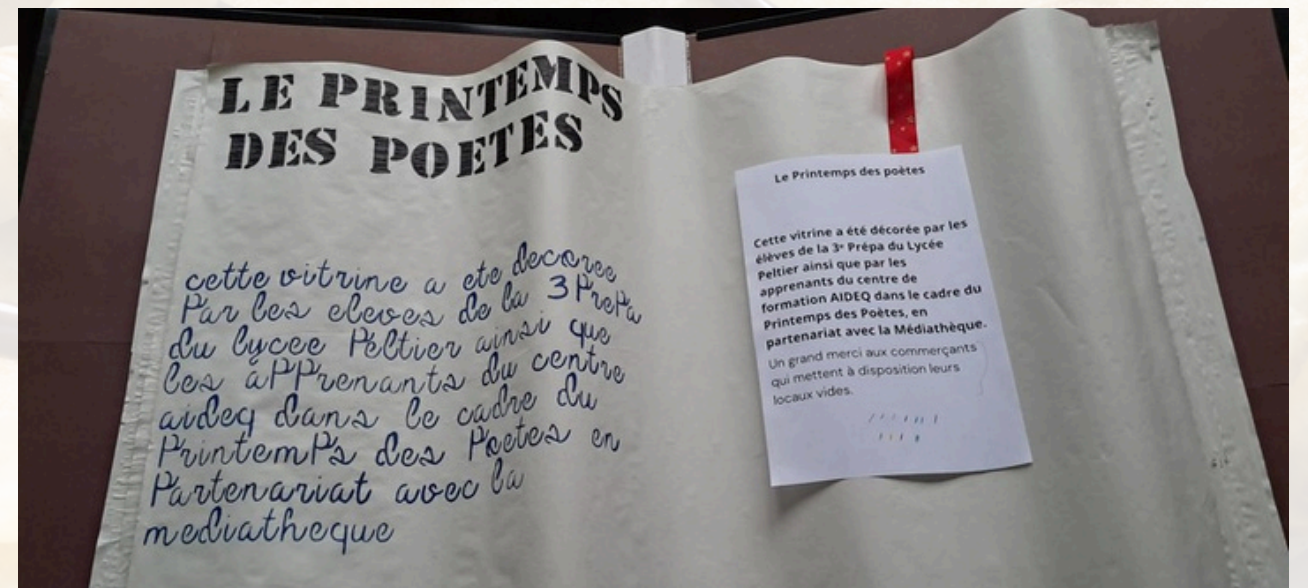 LE PRINTEMPS
DES POETES
cette vitrine a ete decoree
Par les eleves de la 3 PrePa
du lycee Peltier ainsi que
les aPPrenants du centre
aideq dans le cadre du
PrintemPs des Poetes en
Partenariat avec la
mediatheque
Le Printemps des poètes
Cette vitrine a été décorée par les
élèves de la 3e Prépa du Lycée
Peltier ainsi que par les
apprenants du centre de
formation AIDEQ dans le cadre du
Printemps des Poètes, en
partenariat avec la Médiathèque.
Un grand merci aux commerçants
qui mettent à disposition leurs
locaux vides.